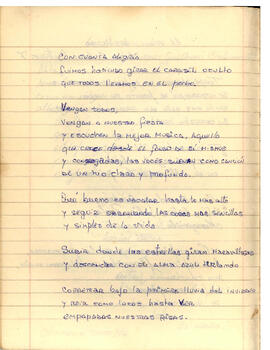 CON CUANTA ALEGRÍA
FUIMOS HACIENDO GIRAR EL CARRUSEL OCULTO
QUE TODOS LLEVAMOS EN EL PECHO.
VENGAN TODOS,
VENGAN A NUESTRA FIESTA
Y ESCUCHEN LA MEJOR MUSICA, AQUELLA
QUE CRECE DESDE EL FONDO DE SÍ MISMOS
Y LAS VOCES COMO CANCIÓN
DE UN RIO CLARO Y PROFUNDO.
BUENO ES HASTA LO MAS ALTO
Y SEGUIR LAS COSAS MAS SENCILLAS
Y SIMPLES DE LA VIDA
SUBIR DONDE LAS ESTRELLAS GIRAN MARAVILLOSAS
Y DESCENDER CON EL ALMA AZUL
CORRETEAR BAJO LA PRIMERA LLUVIA DEL INVIERNO
Y REIR COMO LOCOS HASTA VER
EMPAPADAS NUESTRAS RISAS.